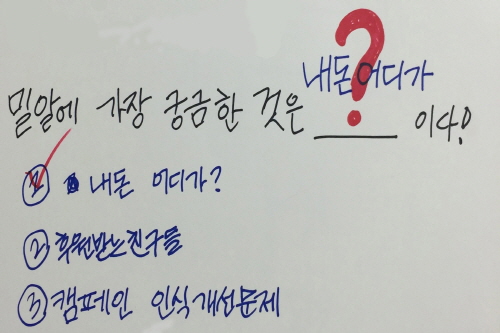 내돈어디가
?
밀알에 가장 궁금한 것은 ______ 이다!
① 내돈 어디가?
② 후원받는친구들
③ 캠페인 인식개선문제